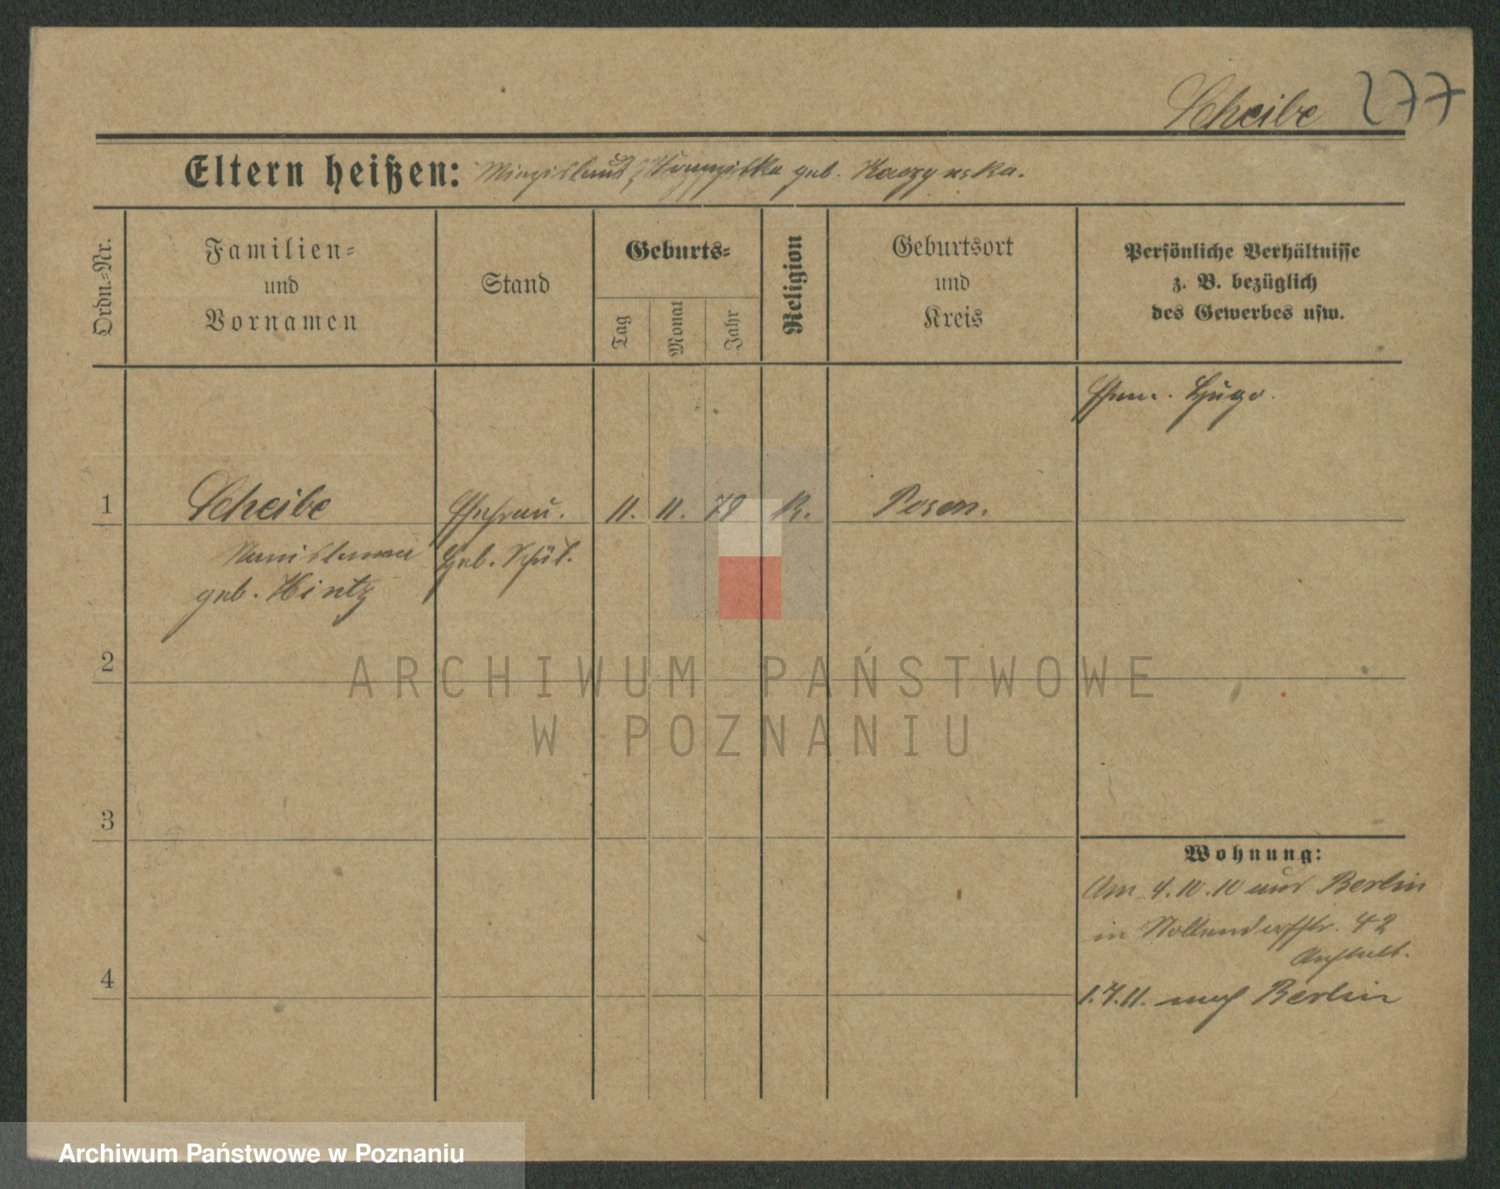 Scheibe 277
Eltern heißen: Miezislaus, Franziska geb. Kaczynska.
Ordn.=Nr.
Familien=
und
Vornamen
Stand
Geburts=
Tag
Monat
Jahr
Religion
Geburtsort
und
Kreis
Persönliche Verhältnisse
z. B. bezüglich
des Gewerbes usw.
Ehem. Hugo.
1 Scheibe Ehefrau. 11. 11. 79 K. Posen.
Stanislawa
geb. Hintz
2
3
4
Wohnung:
Am 4.10.10 aus Berlin
in Nollendorfstr. 42
1.7.11. nach Berlin
ARCHIWUM PAŃSTWOWE
W POZNANIU
Archiwum Państwowe w Poznaniu